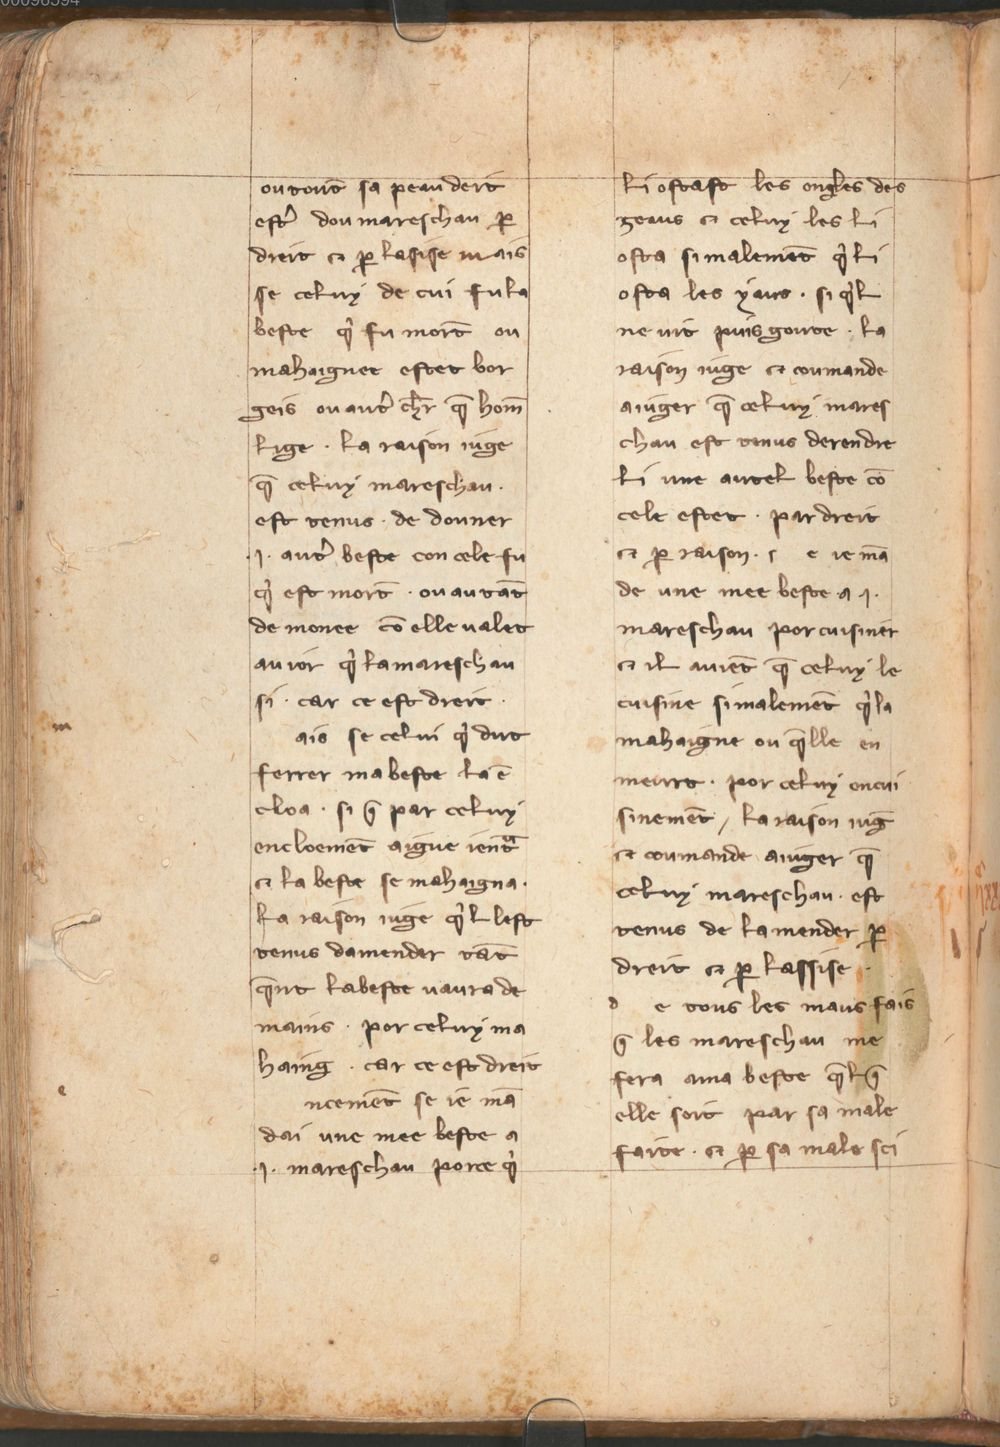 ou tout sa peau deit
estr̉ dou mareschau ꝑ
dreit ⁊ ꝑ lasise mais
se celuy de cui fu la
beste qͥ fu mort̃ ou
mahaignee estet bor
geis ou autr̉ ch̃r q̃ hom̃
lige · la raison iuge
q̃ celuy mareschau ·
est tenus · de douner
·i· autr̉ beste con cele fu
qͥ est mort̃ · ou autãt
de monee cõ elle valet
au ior qͥ la mareschau
si · car ce est dreit ·
m ais se celui qͥ dut
ferrer ma beste la ẽ
cloa · si q̃ par celuy
encloemẽt aigue ientͣ
⁊ la beste se mahaigna ·
la raison iuge qͥl lest
tenus damender tãt
q̃nt la beste vaura de
mains · por celuy ma
haing · car ce est dreit
e ncemẽt se ie mã
dai une mee beste a
·i· mareschau porce qͥ
li ostast les ongles des
geaus ⁊ celuy les li
osta si malemẽt qͥ li
osta les yaus · si qͥl
ne vit puis goute · la
raison iuge ⁊ coumande
a iuger q̃ celuy mares
chau est tenus de rendre
li une autel beste cõ
cele estet · par dreit
⁊ ꝑ raison · s e ie mã
de une mee beste a ·i·
mareschau por cuisiner
⁊ il auiẽt q̃ celuy le
cuisine si malemẽt qͥ la
mahaigne ou q̃lle en
meurt · por celuy encui
sinemẽt / la raison iug̃
⁊ coumande a iuger q̃
celuy mareschau · est
tenus de lamender ꝑ
dreit ⁊ ꝑ lassise ·
d e tous les maus fais
q̃ les mareschau me
fera a ma beste q̃l q̃
elle soit par sa male
faite · ⁊ ꝑ sa male sci